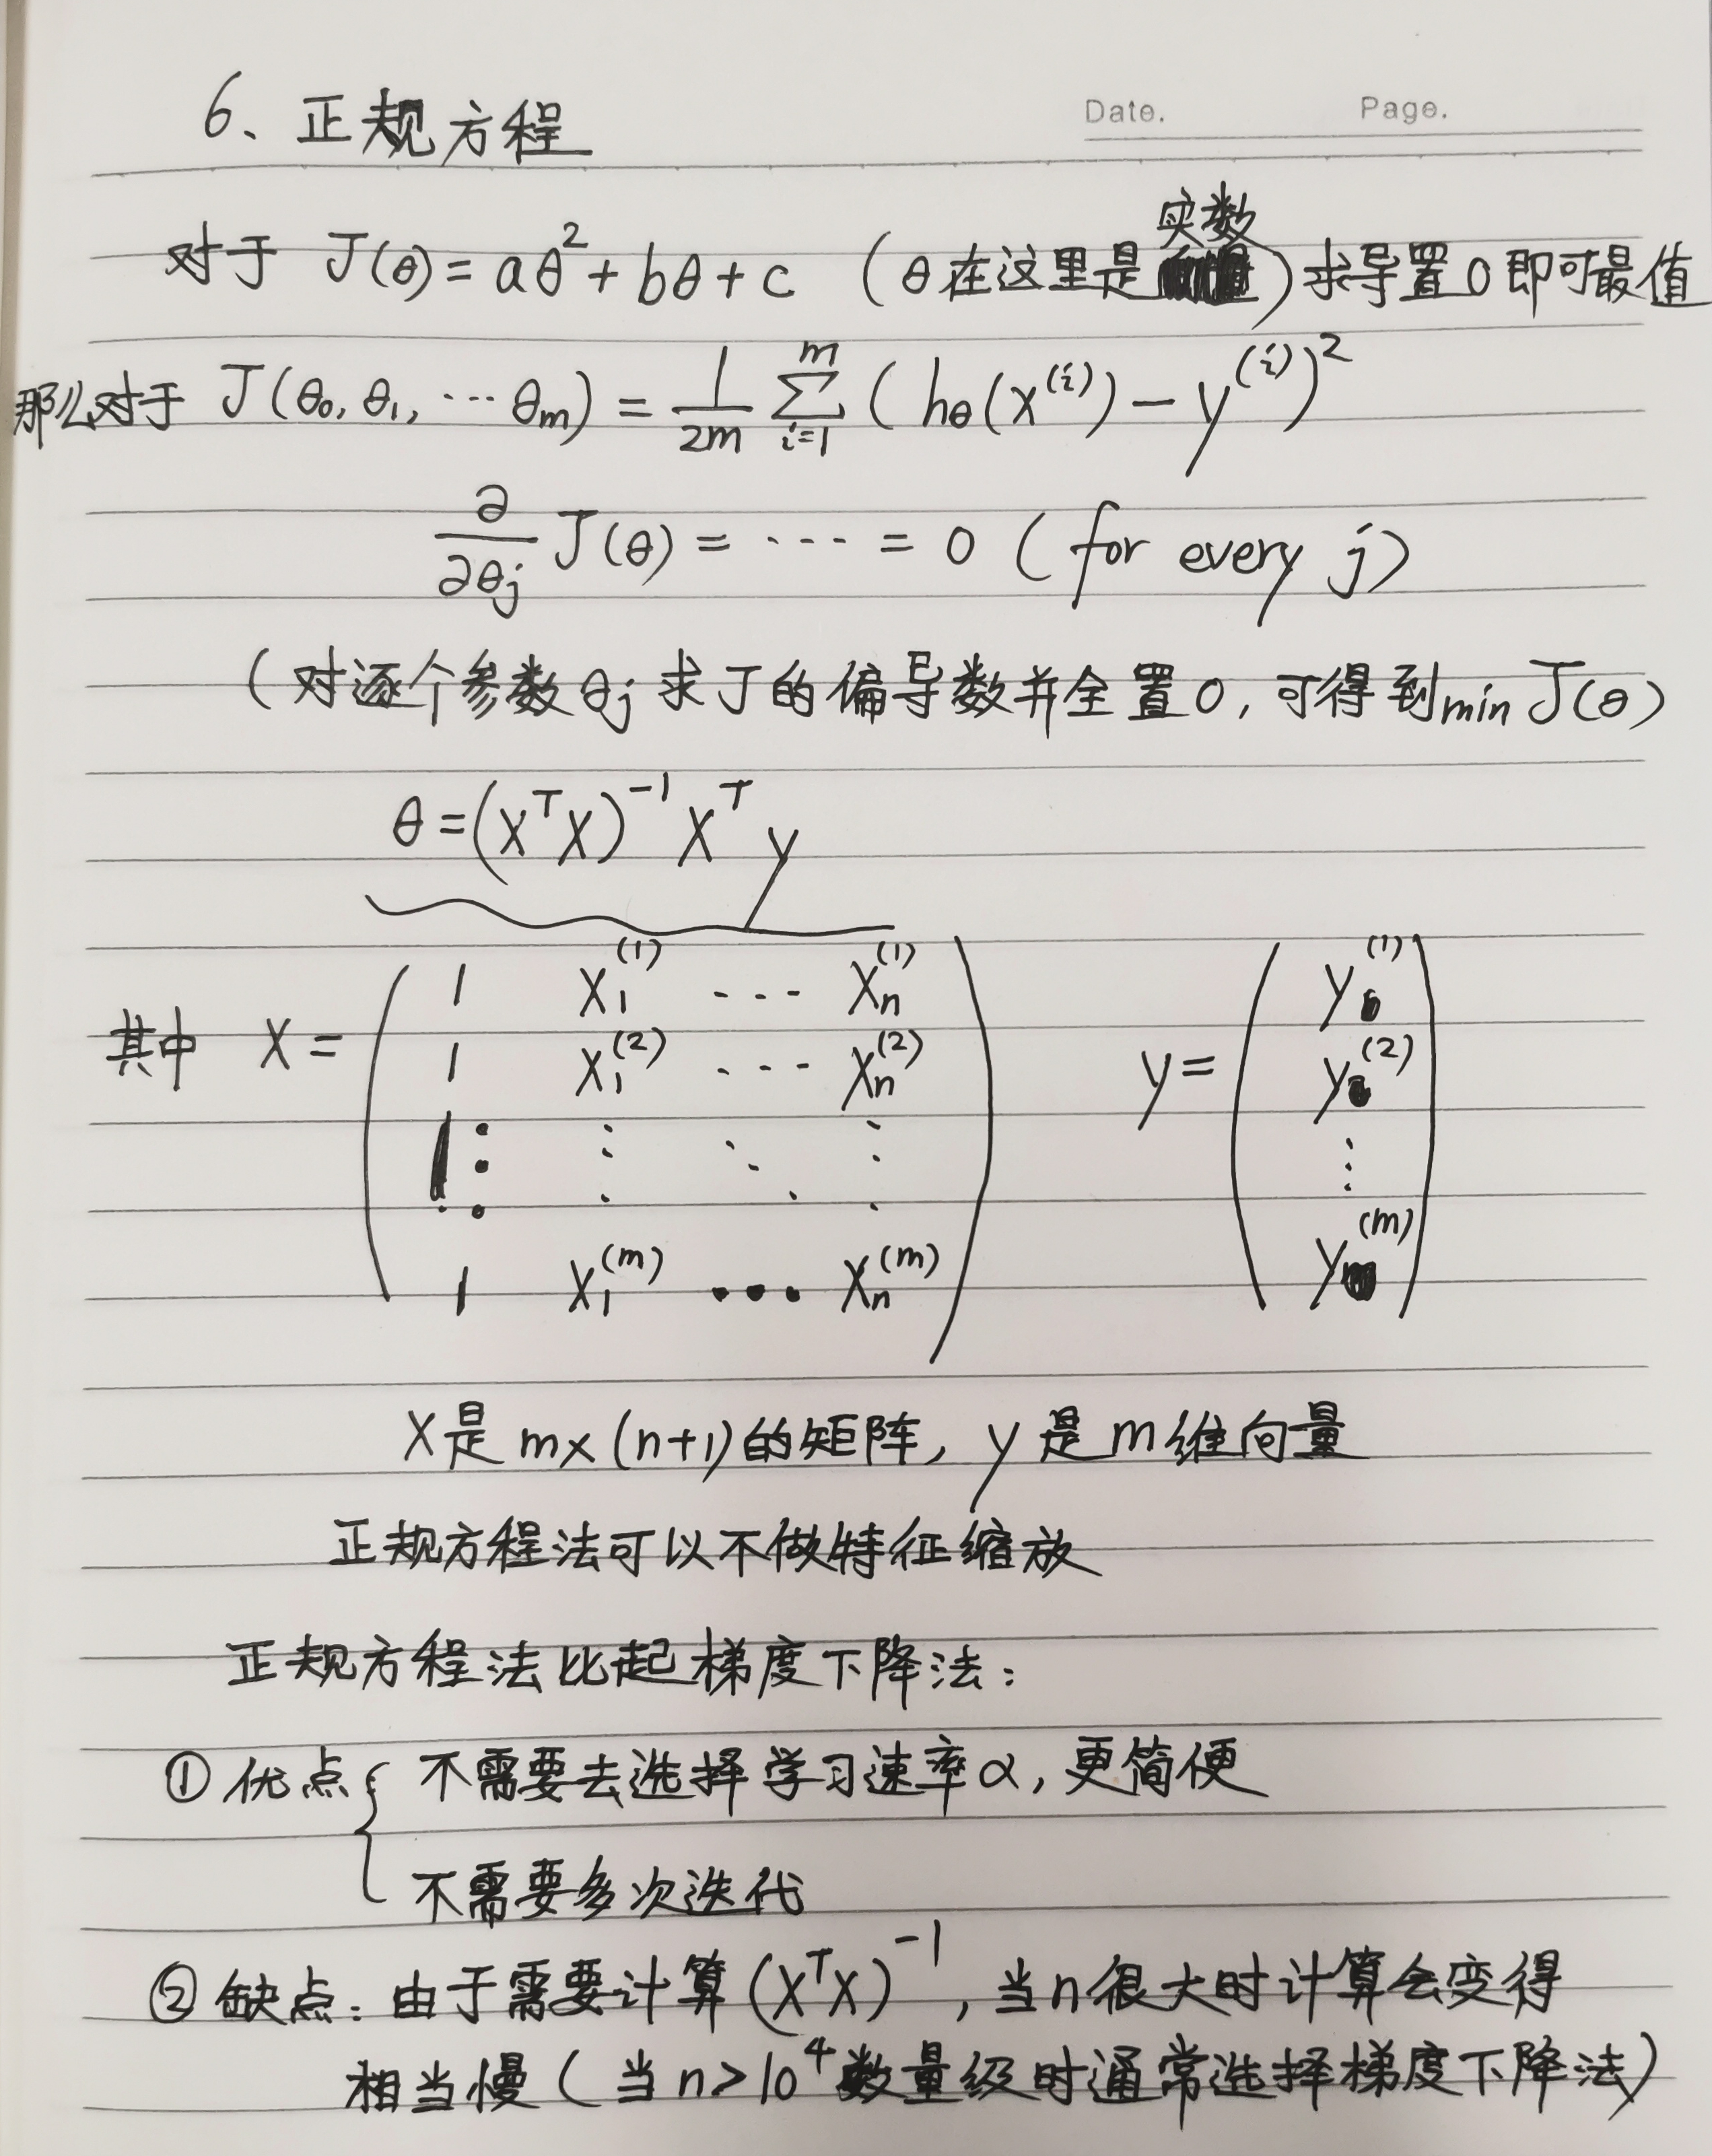 Date. Page.
6、正规方程
对于 J(θ)=aθ²+bθ+c （θ在这里是实数）求导置0即可最值
那么对于 J(θ₀, θ₁, ⋯ θₘ) = 1/2m ∑ᵢ₌₁ᵐ (hθ(x⁽ⁱ⁾) − y⁽ⁱ⁾)²
∂/∂θⱼ J(θ) = ⋯⋯ = 0 (for every j)
(对逐个参数θⱼ求J的偏导数并全置0, 可得到min J(θ)
θ=(XᵀX)⁻¹Xᵀy
其中 X = ( 1 x₁⁽¹⁾ ⋯ xₙ⁽¹⁾ y = ( y⁽¹⁾
1 x₁⁽²⁾ ⋯ xₙ⁽²⁾ y⁽²⁾
⋮ ⋮ ⋱ ⋮ ⋮
1 x₁⁽ᵐ⁾ ⋯ xₙ⁽ᵐ⁾ ) y⁽ᵐ⁾ )
X是 m×(n+1)的矩阵, y是m维向量
正规方程法可以不做特征缩放
正规方程法比起梯度下降法：
① 优点{ 不需要去选择学习速率α, 更简便
不需要多次迭代
② 缺点: 由于需要计算(XᵀX)⁻¹, 当n很大时计算会变得
相当慢（当n>10⁴数量级时通常选择梯度下降法）